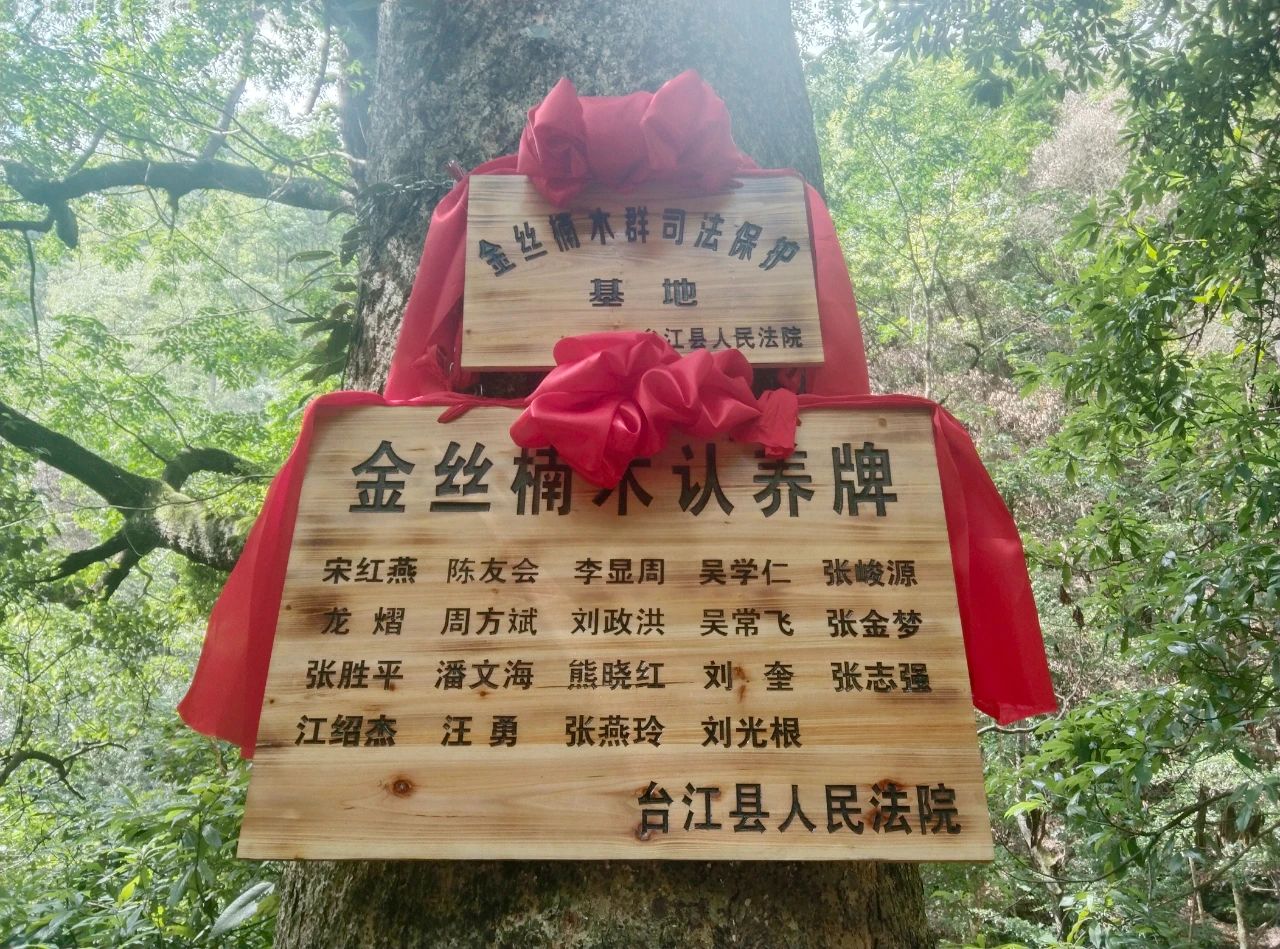 金丝楠木群司法保护
基地
台江县人民法院
金丝楠木认养牌
宋红燕 陈友会 李显周 吴学仁 张峻源
龙熠 周方斌 刘政洪 吴常飞 张金梦
张胜平 潘文海 熊晓红 刘奎 张志强
江绍杰 汪勇 张燕玲 刘光根
台江县人民法院